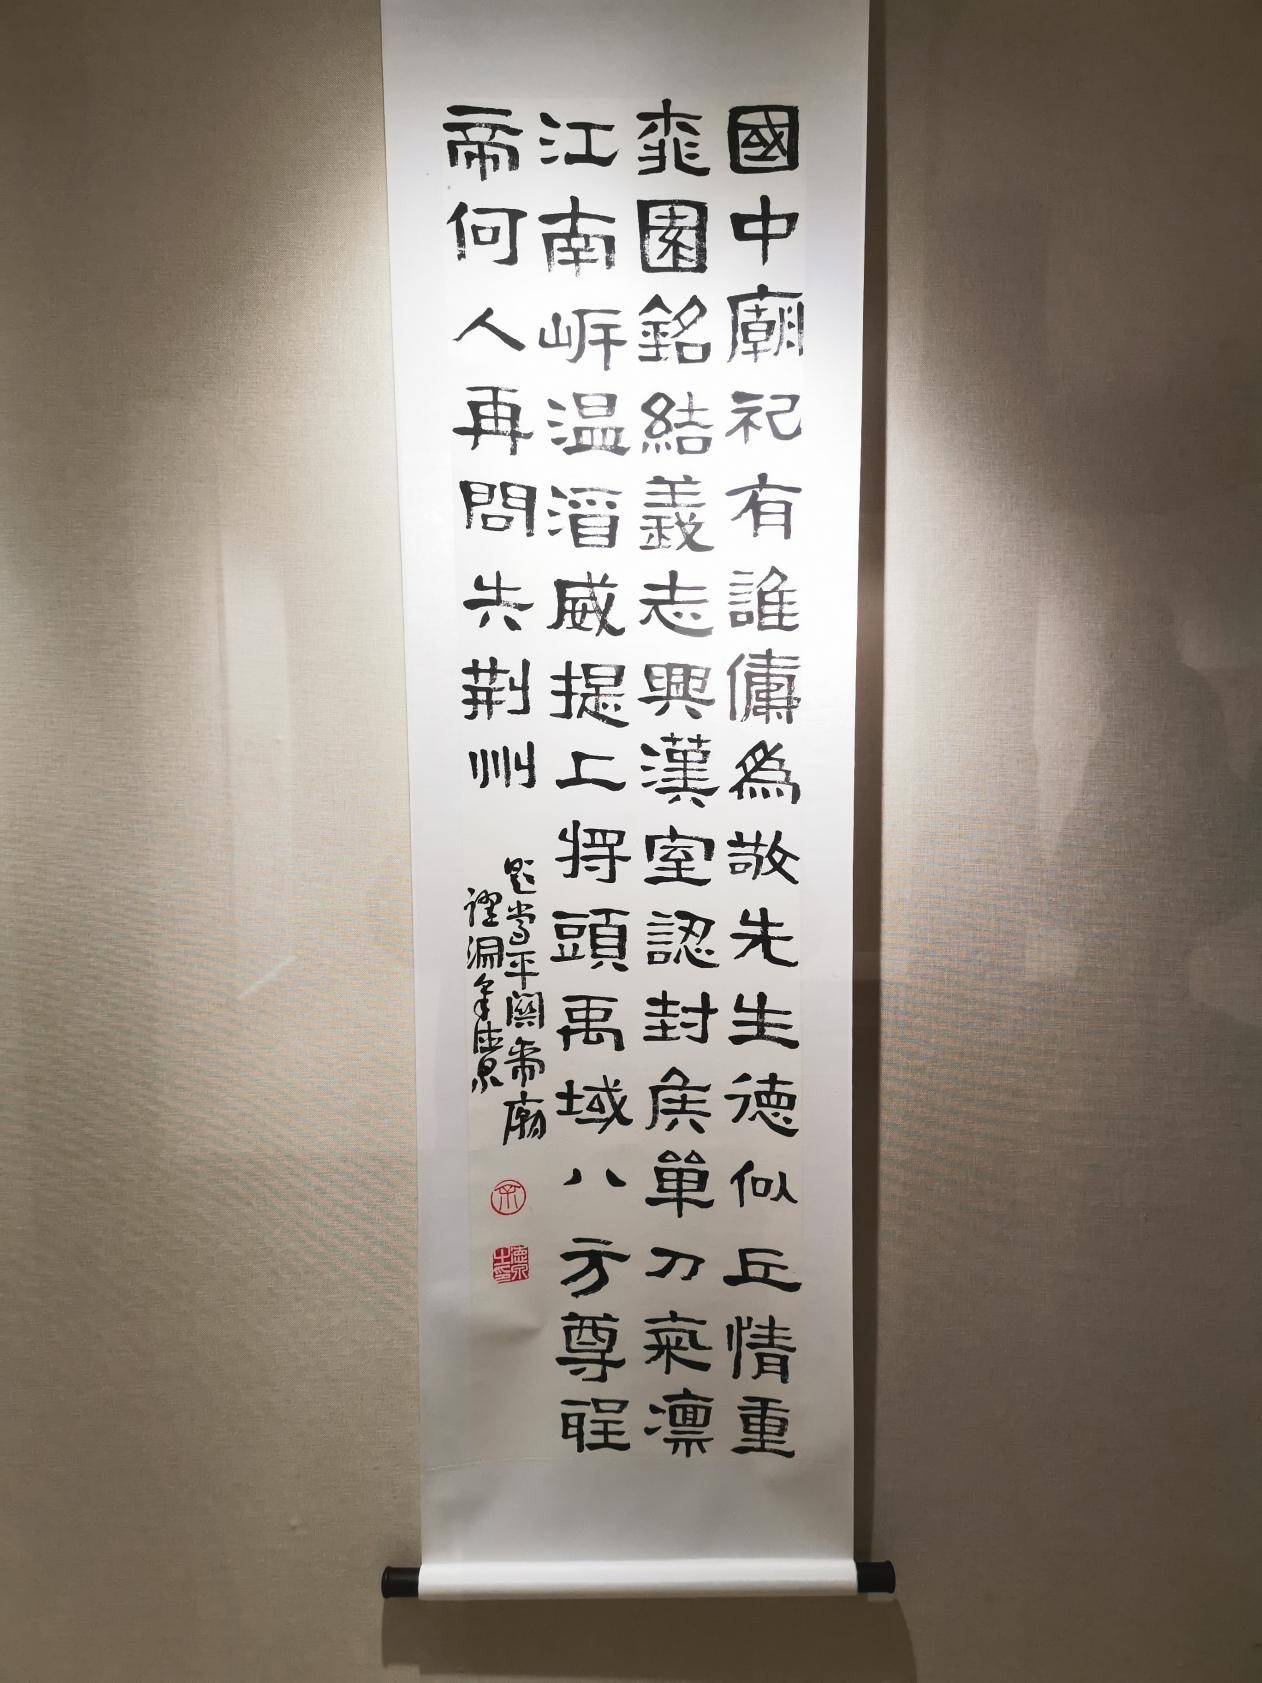 國中廟祀有誰儔為敬先生德似丘情重
桃園銘結義志興漢室認封侯單刀氣凜
江南岍温酒威提上將頭禹域八方尊聖
帝何人再問失荆州
題常平關帝廟